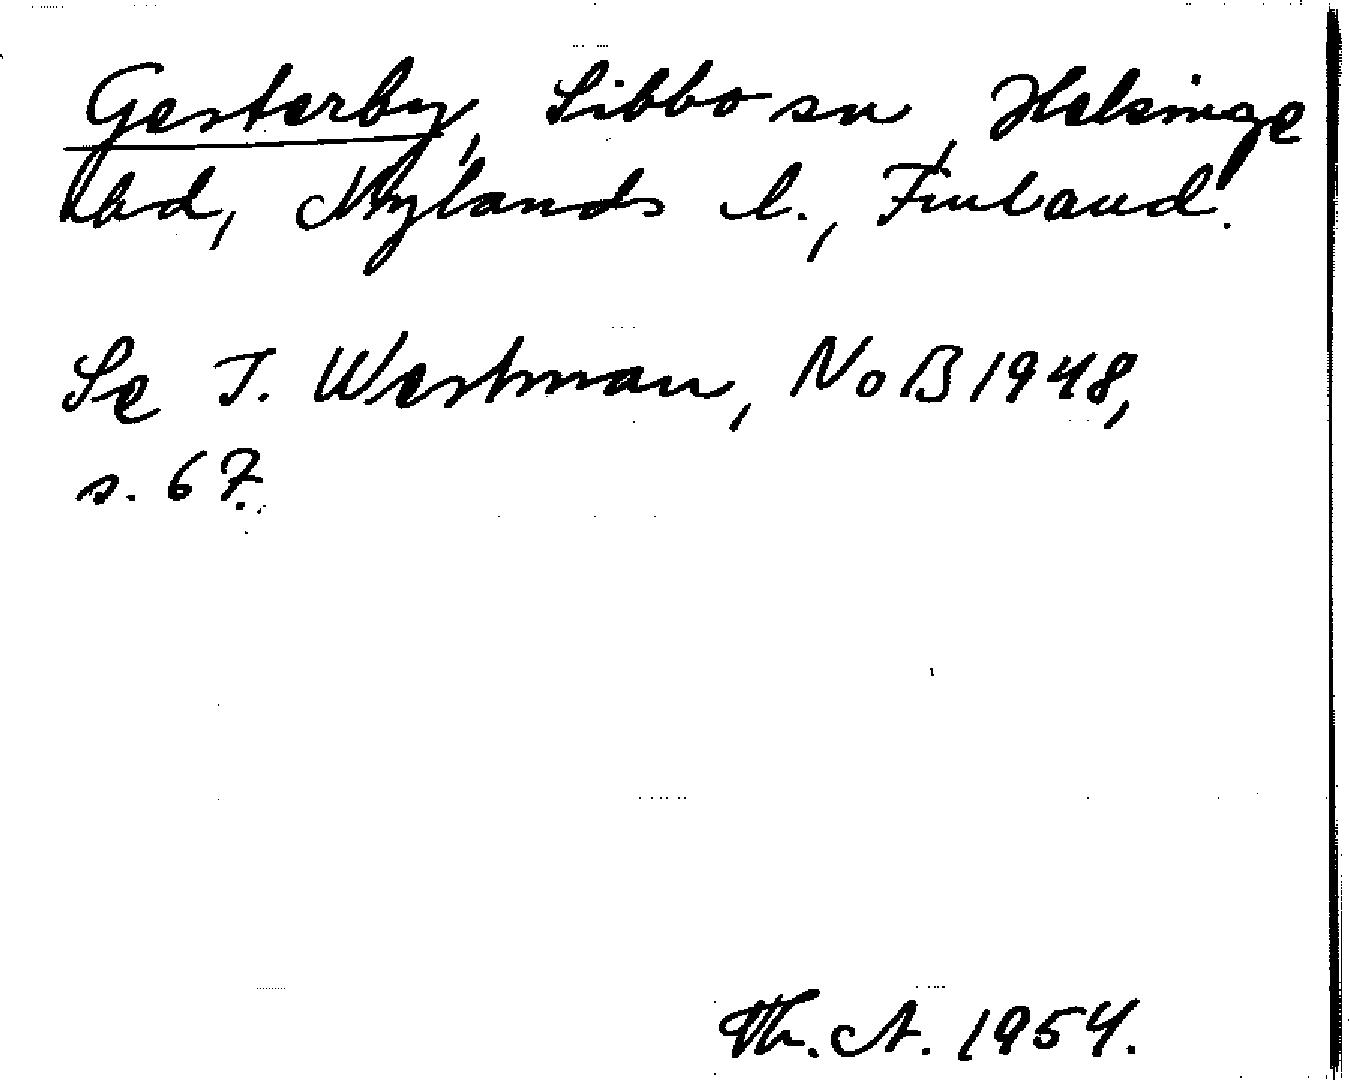 Gesterby, Sibbo sn, Helsinge
hd, Nylands l., Finland.
Se I. Westman, NoB 1948,
s. 67.
Th. A. 1954.